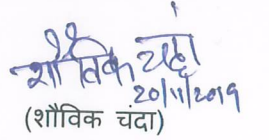 शौविक चंदा
20/11/2019
(शौविक चंदा)